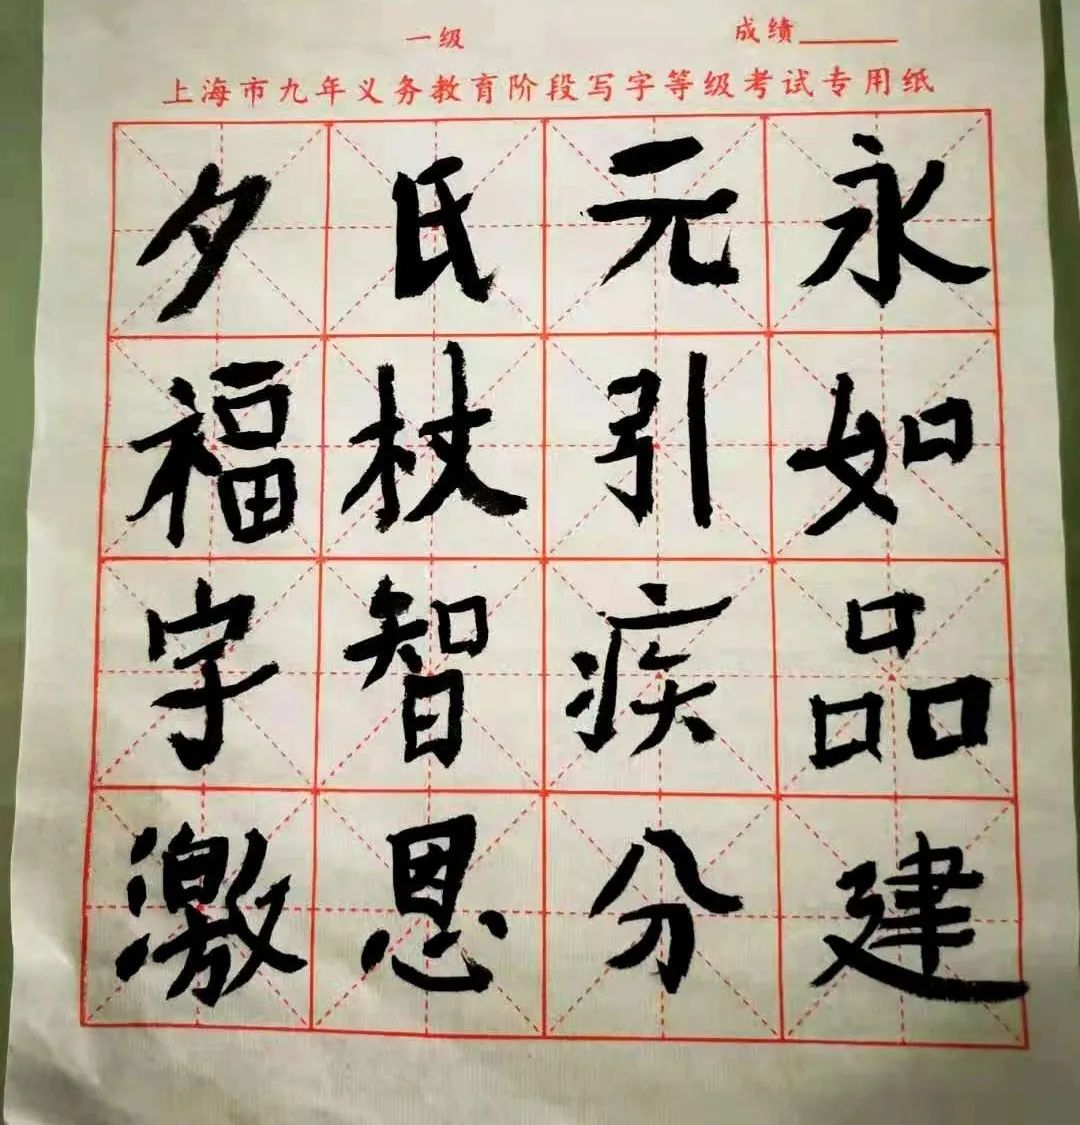 一级
成绩
上海市九年义务教育阶段写字等级考试专用纸
夕氏元永
福杖引如
字智疾品
激恩分建